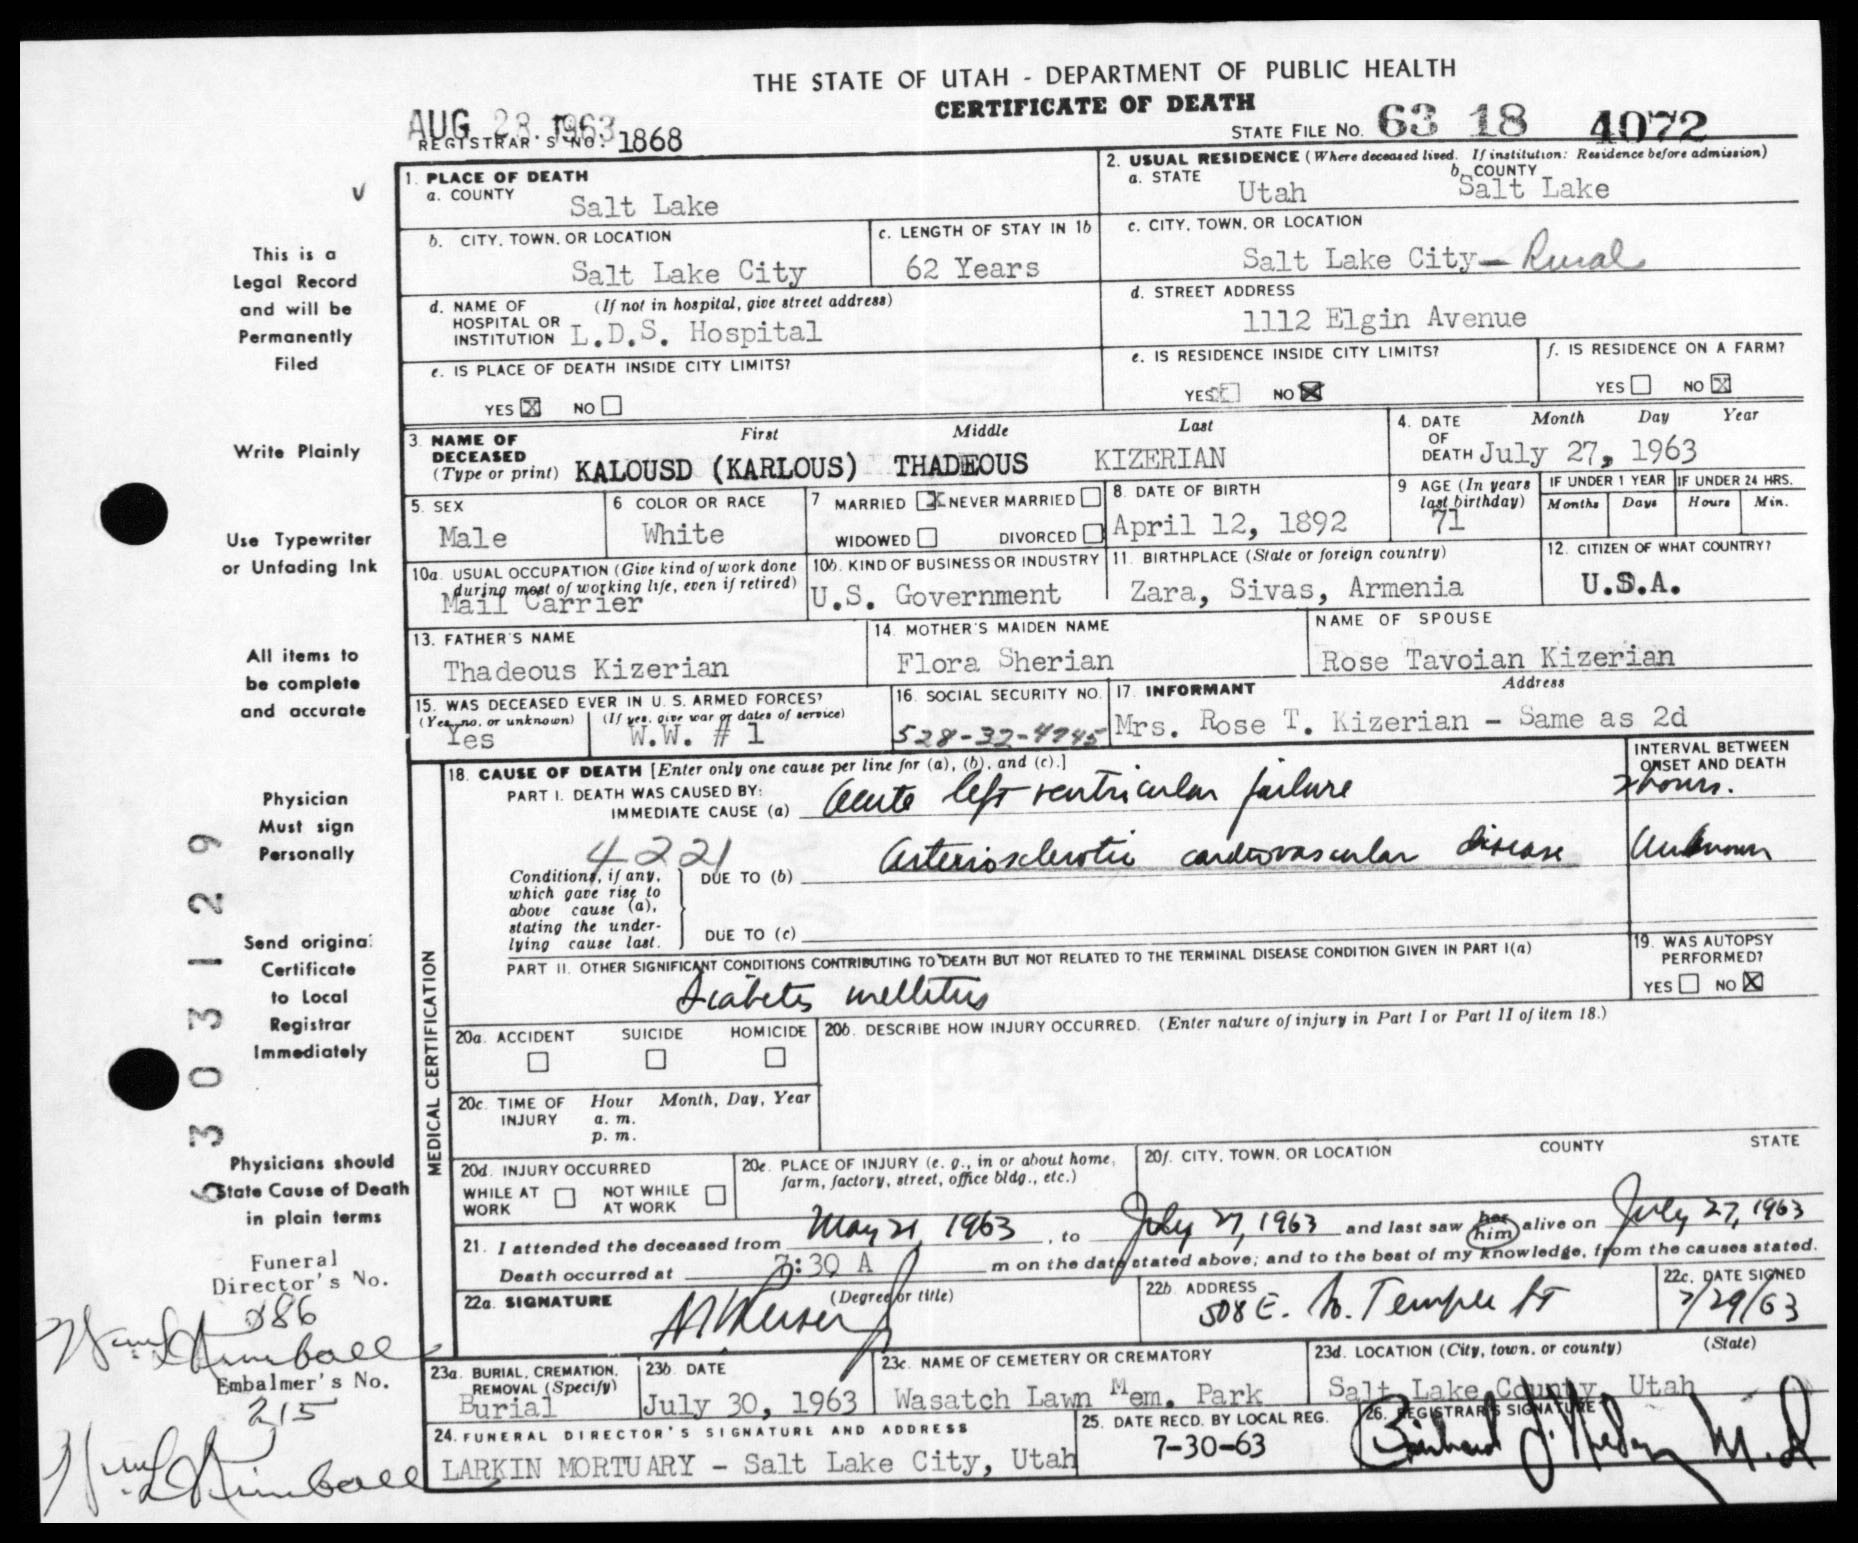 THE STATE OF UTAH - DEPARTMENT OF PUBLIC HEALTH
CERTIFICATE OF DEATH
AUG 28 1963
REGISTRAR'S NO. 1868
STATE FILE NO. 63 18 4072
This is a
Legal Record
and will be
Permanently
Filed
Write Plainly
Use Typewriter
or Unfading Ink
All items to
be complete
and accurate
Physician
Must sign
Personally
Send original
Certificate
to Local
Registrar
Immediately
Physicians should
State Cause of Death
in plain terms
Funeral
Director's No.
186
Embalmer's No.
215
6303129
1. PLACE OF DEATH
a. COUNTY
Salt Lake
b. CITY, TOWN, OR LOCATION
Salt Lake City
c. LENGTH OF STAY IN 1b
62 Years
d. NAME OF HOSPITAL OR INSTITUTION (If not in hospital, give street address)
L.D.S. Hospital
e. IS PLACE OF DEATH INSIDE CITY LIMITS?
YES X NO
2. USUAL RESIDENCE (Where deceased lived. If institution: Residence before admission)
a. STATE
Utah
b. COUNTY
Salt Lake
c. CITY, TOWN, OR LOCATION
Salt Lake City — Rural
d. STREET ADDRESS
1112 Elgin Avenue
e. IS RESIDENCE INSIDE CITY LIMITS?
YES NO X
f. IS RESIDENCE ON A FARM?
YES NO X
3. NAME OF DECEASED (Type or print)
First Middle Last
KALOUSD (KARLOUS) THADEOUS KIZERIAN
4. DATE OF DEATH Month Day Year
July 27, 1963
5. SEX
Male
6 COLOR OR RACE
White
7 MARRIED X NEVER MARRIED
WIDOWED DIVORCED
8. DATE OF BIRTH
April 12, 1892
9 AGE (In years last birthday)
71
IF UNDER 1 YEAR
Months Days
IF UNDER 24 HRS.
Hours Min.
10a. USUAL OCCUPATION (Give kind of work done during most of working life, even if retired)
Mail Carrier
10b. KIND OF BUSINESS OR INDUSTRY
U.S. Government
11. BIRTHPLACE (State or foreign country)
Zara, Sivas, Armenia
12. CITIZEN OF WHAT COUNTRY?
U.S.A.
13. FATHER'S NAME
Thadeous Kizerian
14. MOTHER'S MAIDEN NAME
Flora Sherian
NAME OF SPOUSE
Rose Tavoian Kizerian
15. WAS DECEASED EVER IN U. S. ARMED FORCES?
(Yes, no, or unknown) (If yes, give war or dates of service)
Yes W.W. # 1
16. SOCIAL SECURITY NO.
528-32-4745
17. INFORMANT Address
Mrs. Rose T. Kizerian - Same as 2d
MEDICAL CERTIFICATION
18. CAUSE OF DEATH [Enter only one cause per line for (a), (b), and (c).]
INTERVAL BETWEEN ONSET AND DEATH
PART I. DEATH WAS CAUSED BY:
IMMEDIATE CAUSE (a) Acute left ventricular failure
2 hours.
4221
Conditions, if any,
which gave rise to
above cause (a),
stating the under-
lying cause last.
DUE TO (b) Arteriosclerotic cardiovascular disease
Unknown
DUE TO (c)
PART II. OTHER SIGNIFICANT CONDITIONS CONTRIBUTING TO DEATH BUT NOT RELATED TO THE TERMINAL DISEASE CONDITION GIVEN IN PART I(a)
Diabetes mellitus
19. WAS AUTOPSY PERFORMED?
YES NO X
20a. ACCIDENT SUICIDE HOMICIDE
20b. DESCRIBE HOW INJURY OCCURRED. (Enter nature of injury in Part I or Part II of item 18.)
20c. TIME OF INJURY Hour Month, Day, Year
a. m.
p. m.
20d. INJURY OCCURRED
WHILE AT WORK NOT WHILE AT WORK
20e. PLACE OF INJURY (e. g., in or about home, farm, factory, street, office bldg., etc.)
20f. CITY, TOWN, OR LOCATION COUNTY STATE
21. I attended the deceased from May 21, 1963, to July 27, 1963 and last saw her him alive on July 27, 1963
Death occurred at 7:30 A m on the date stated above; and to the best of my knowledge, from the causes stated.
22a. SIGNATURE (Degree or title)
22b. ADDRESS
508 E. So. Temple St
22c. DATE SIGNED
7/29/63
23a. BURIAL, CREMATION, REMOVAL (Specify)
Burial
23b. DATE
July 30, 1963
23c. NAME OF CEMETERY OR CREMATORY
Wasatch Lawn Mem. Park
23d. LOCATION (City, town, or county) (State)
Salt Lake County, Utah
24. FUNERAL DIRECTOR'S SIGNATURE AND ADDRESS
LARKIN MORTUARY - Salt Lake City, Utah
25. DATE RECD. BY LOCAL REG.
7-30-63
26. REGISTRAR'S SIGNATURE